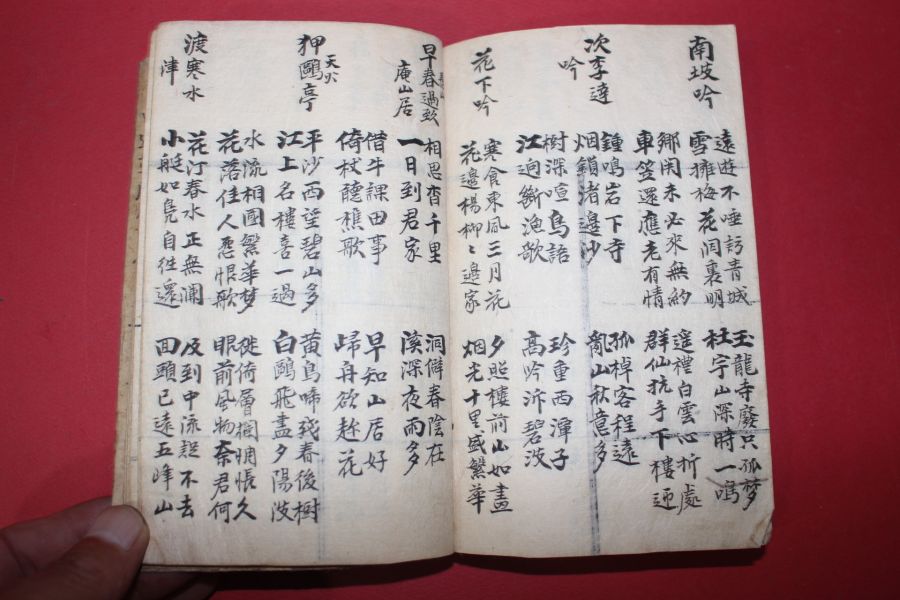 南坡吟
遠遊不唾訪青城
雪擁梅花洞裏明
鄉閑未必來無約
車笠還應老有情
玉龍寺廢只孤梦
杜宇山深時一鳴
遥禮白雲心折處
群仙抗手下樓迎
次李達
吟
鍾鳴岩下寺
烟鎖渚邊沙
樹深喧鳥語
江迥斷漁歌
孤棹客程遠
亂山秋意多
珍重西潭子
高吟泝碧波
花下吟
寒食東風三月花
花邊楊柳〻邊家
夕照樓前山如畵
烟光十里盛繁華
早春過
庵山居
相思杳千里
一日到君家
借牛課田事
倚杖聽樵歌
洞僻春陰在
溪深夜雨多
早知山居好
歸舟欲趂花
狎鷗亭
平沙西望碧山多
江上名樓喜一過
水流相國繁華梦
花落佳人恨歌
黄鳥啼殘春後樹
白鷗飛盡夕陽波
徙倚層欄惆悵久
眼前風物奈君何
渡寒水
津
花汀春水正無瀾
小艇如凫自往還
及到中流疑不去
回頭已遠五峰山